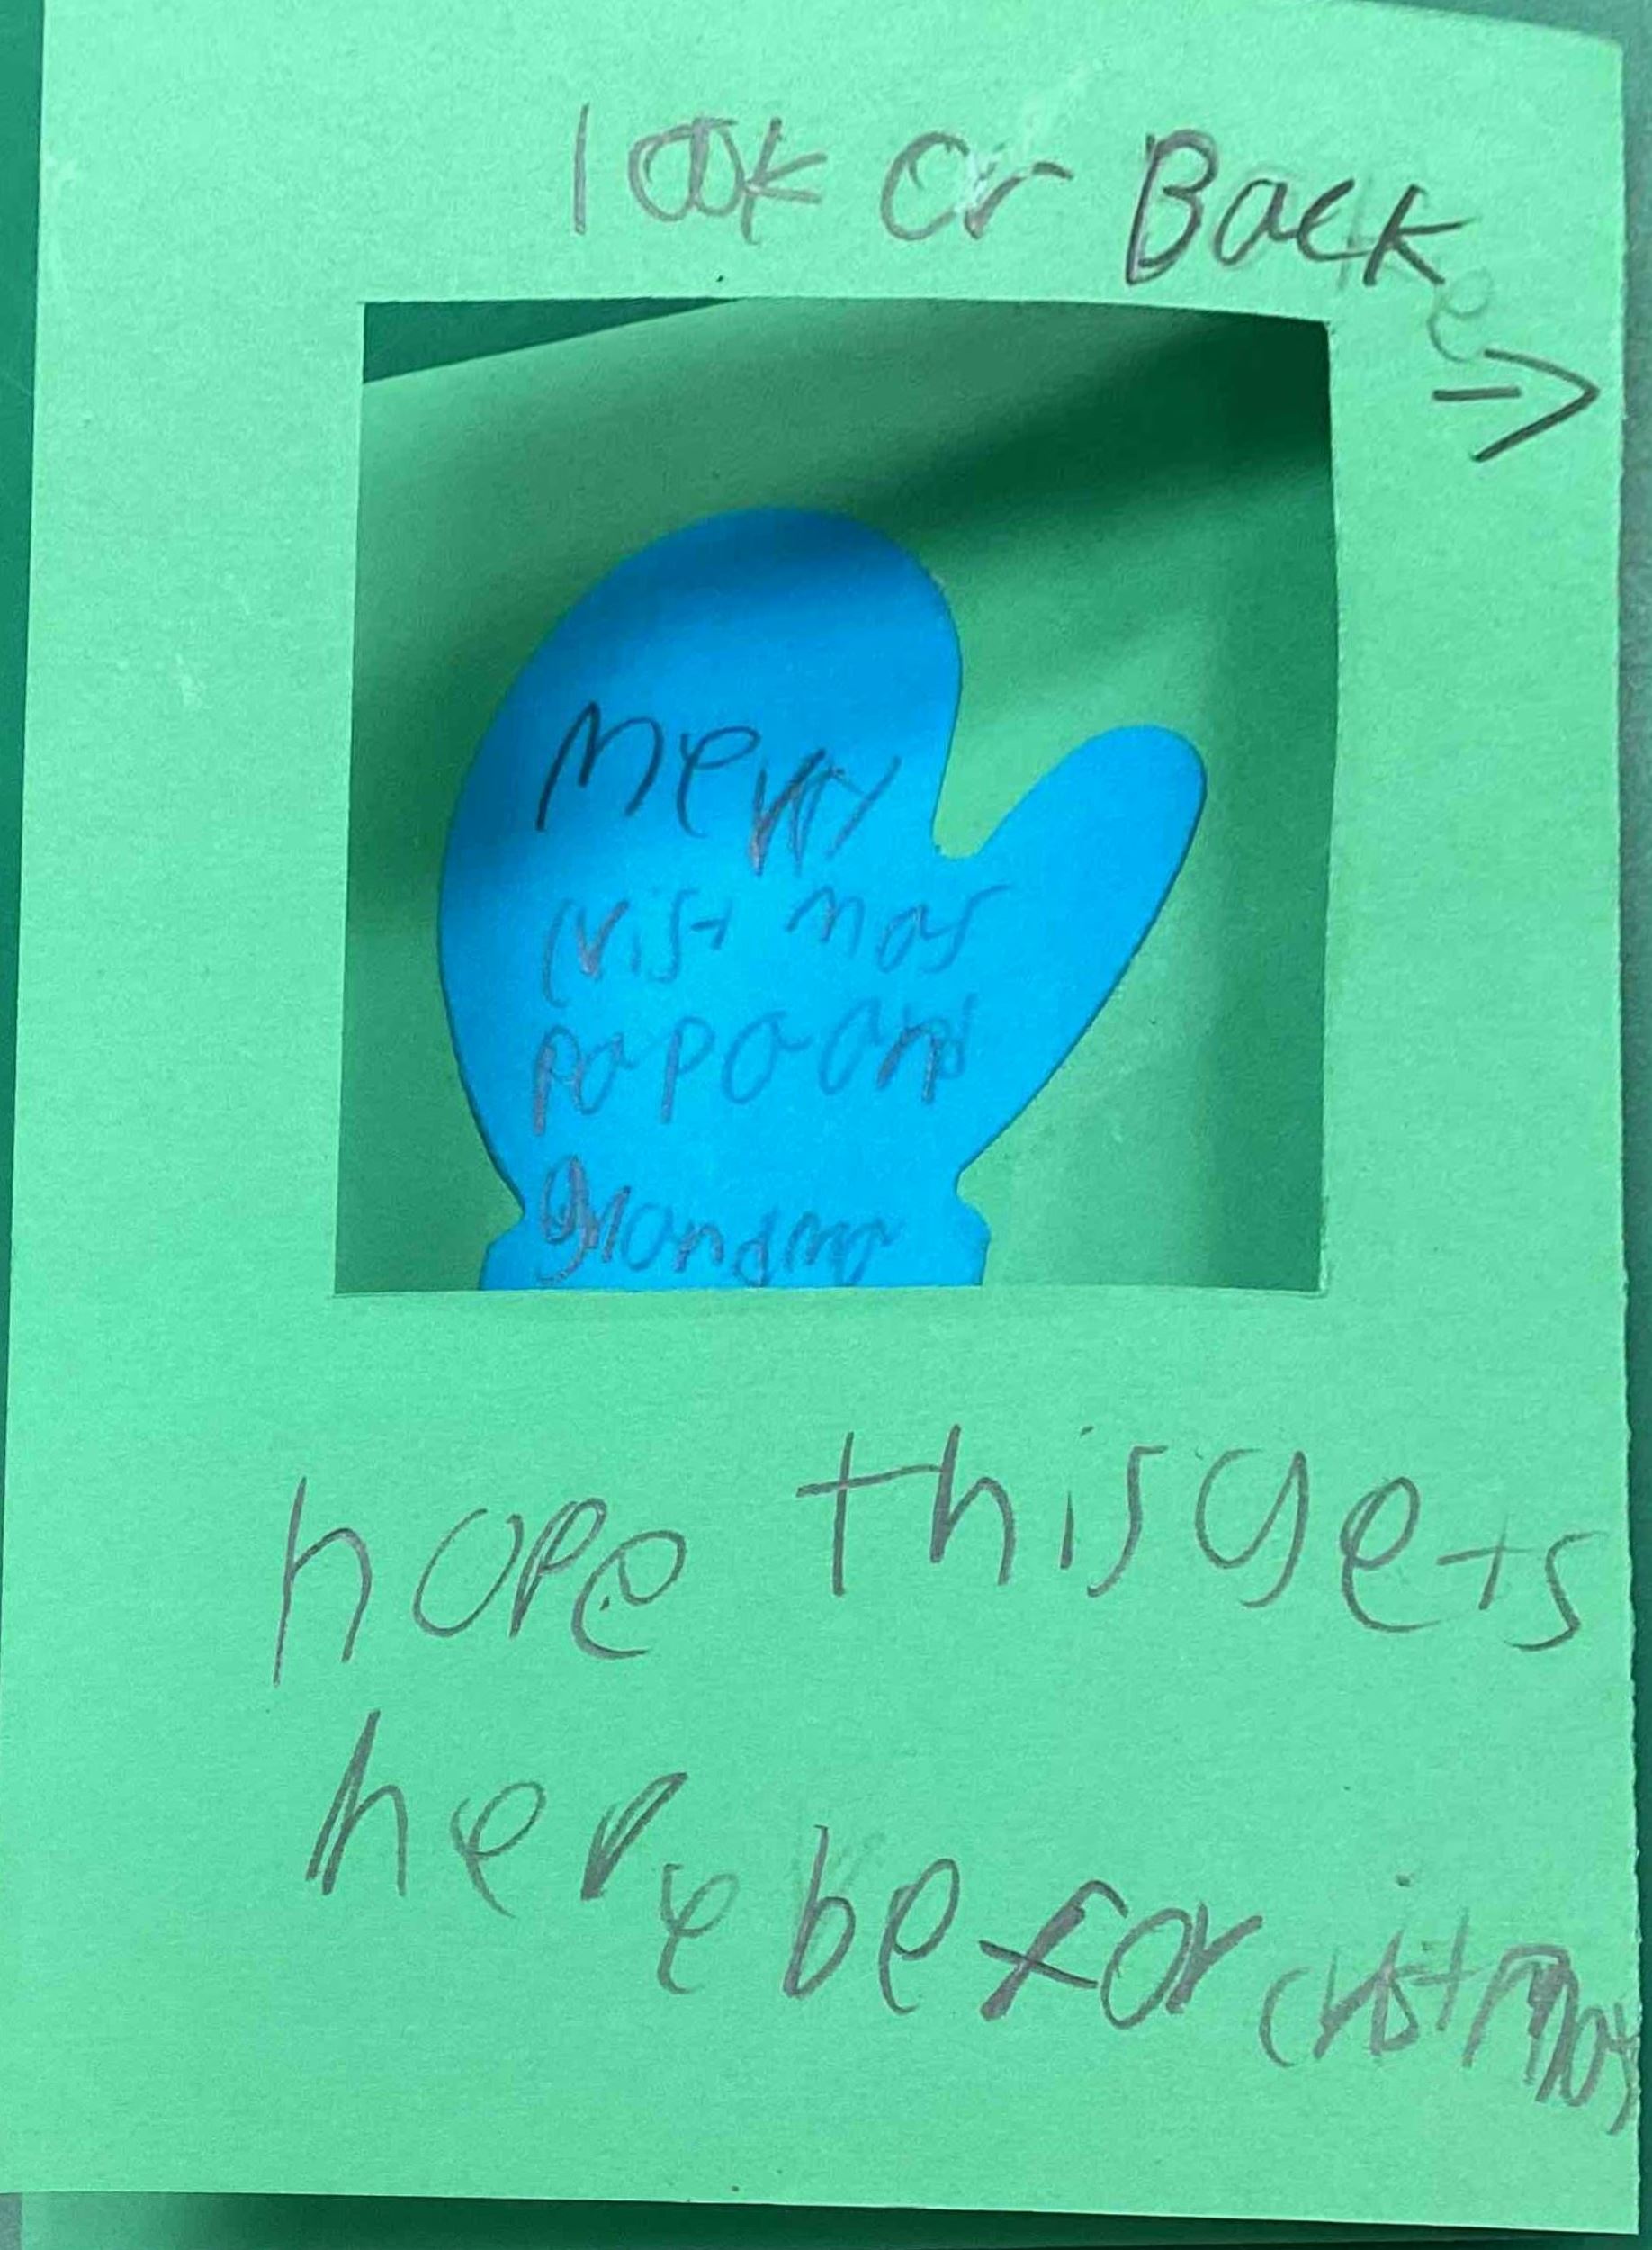 look or Back
→
merry
crist mas
papa and
grandma
hope this gets
here befor cristmas